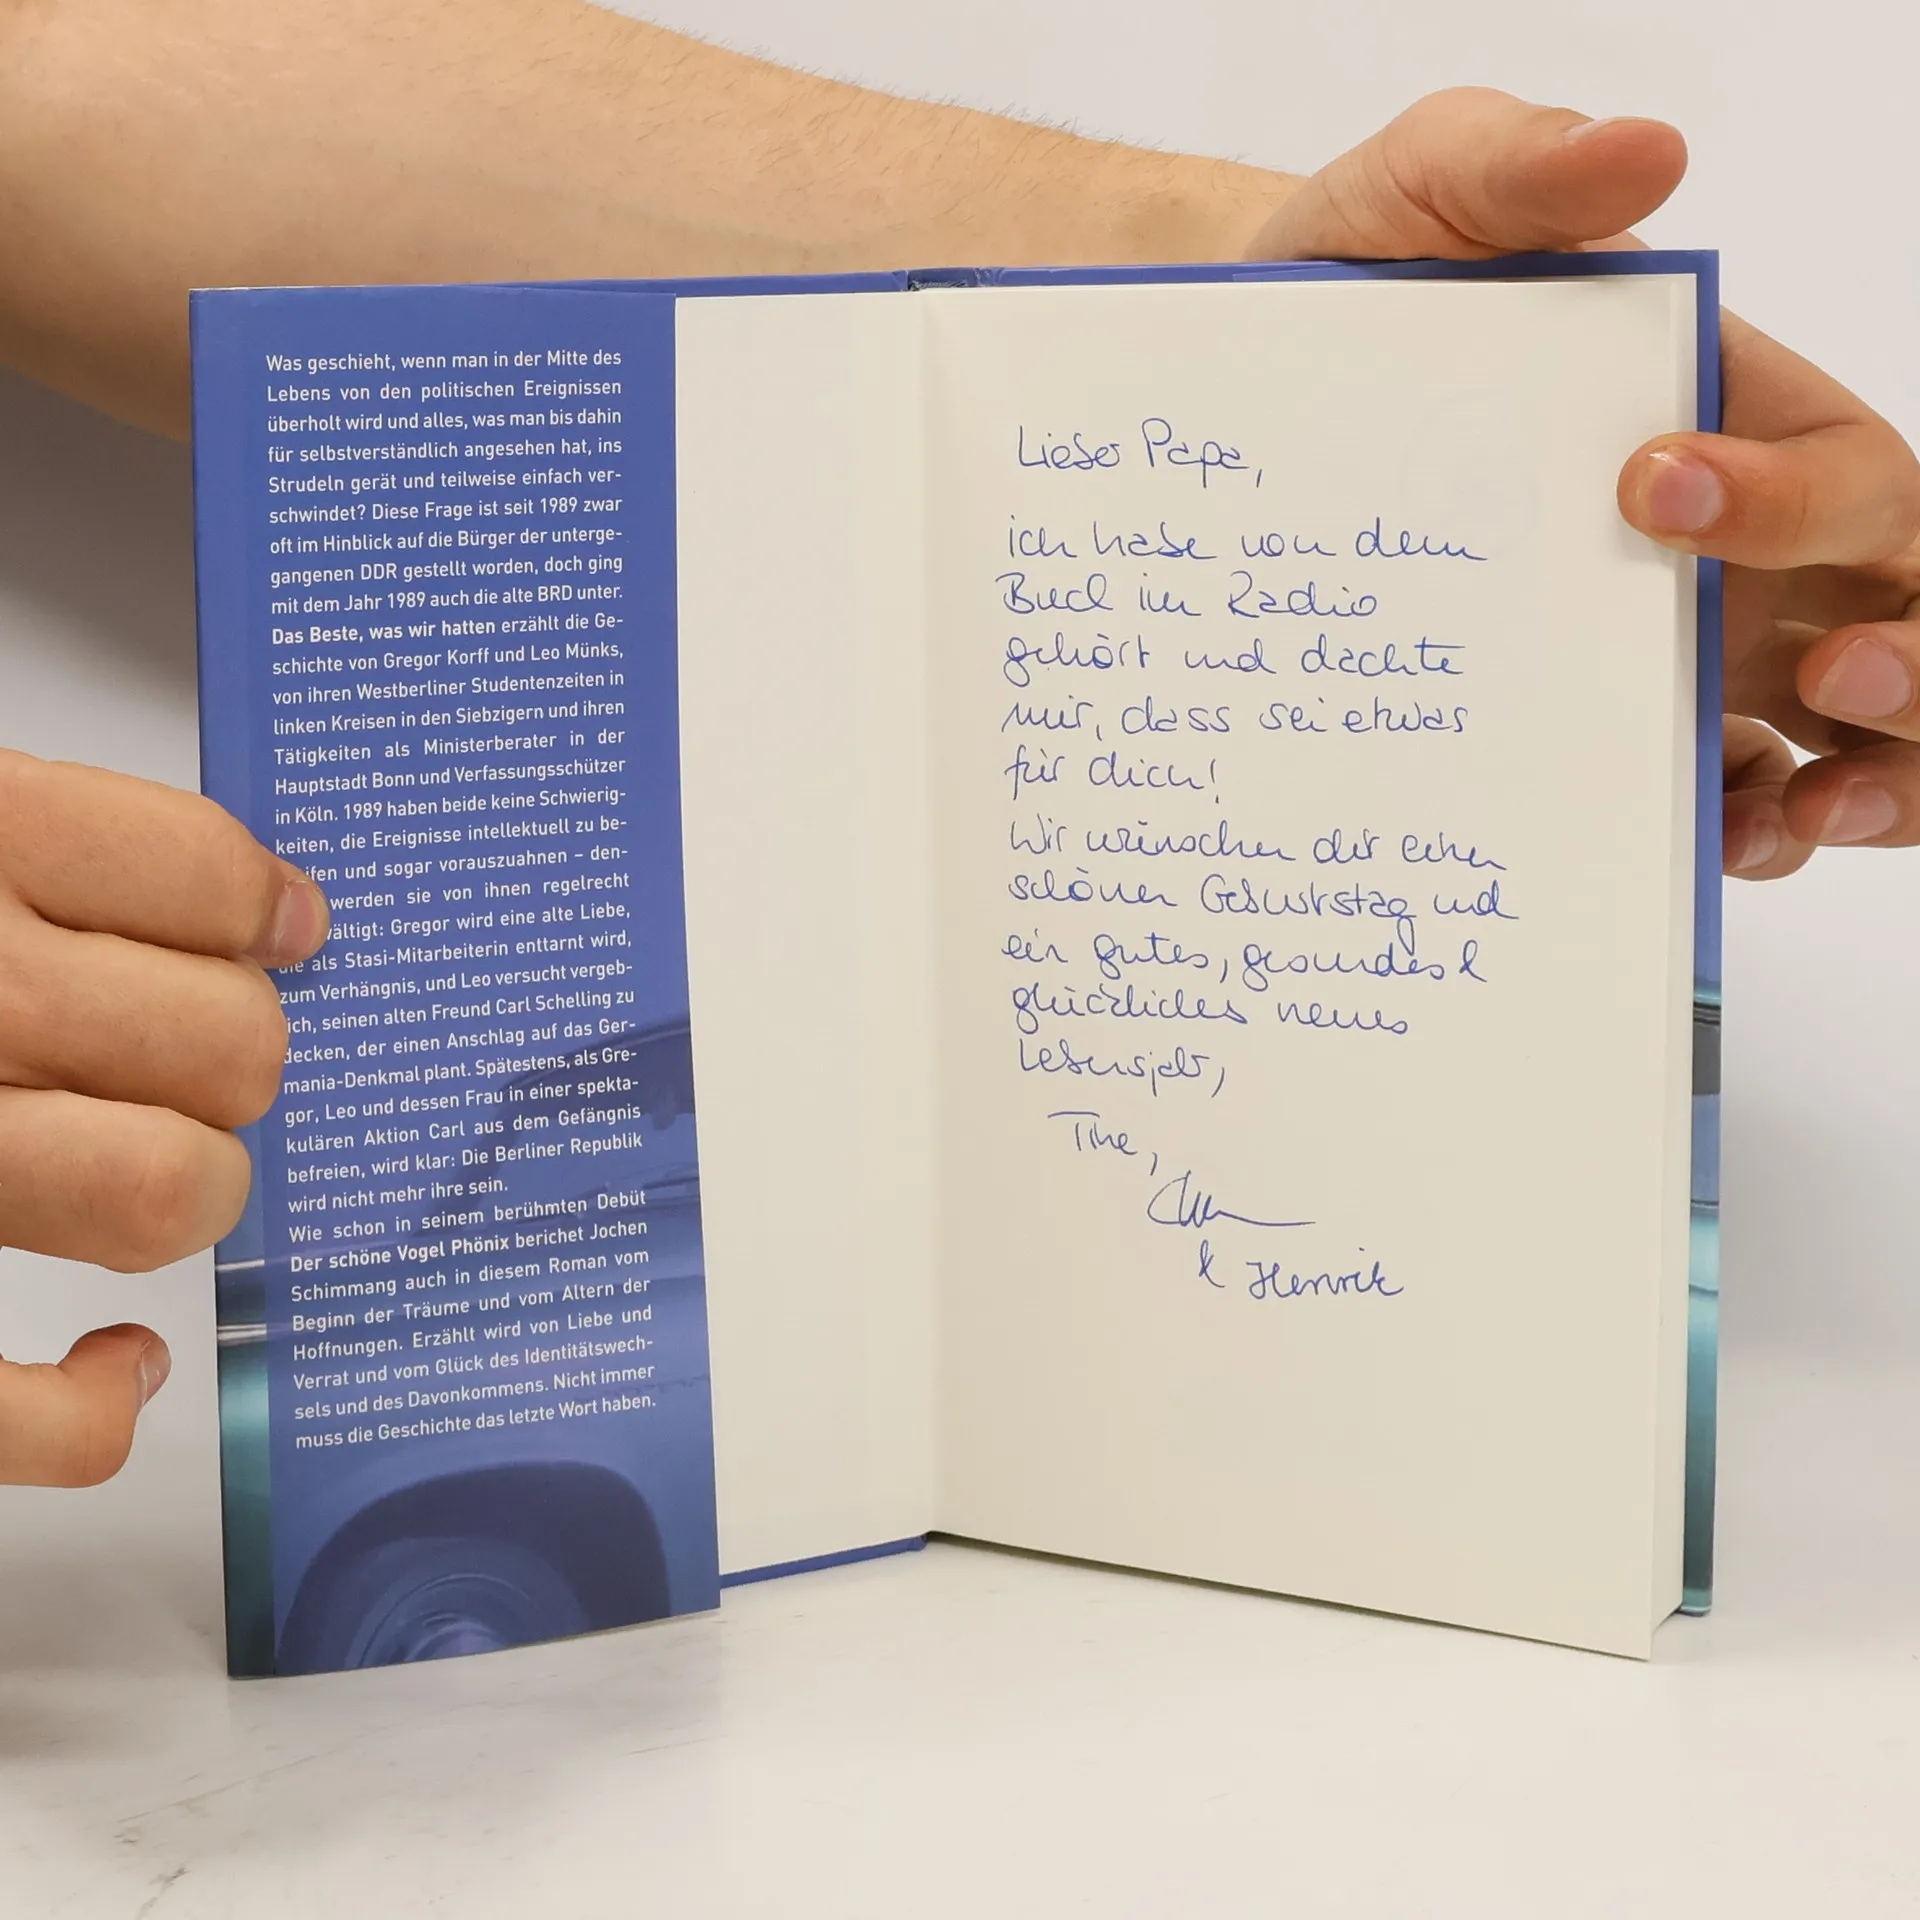 Was geschieht, wenn man in der Mitte des
Lebens von den politischen Ereignissen
überholt wird und alles, was man bis dahin
für selbstverständlich angesehen hat, ins
Strudeln gerät und teilweise einfach ver-
schwindet? Diese Frage ist seit 1989 zwar
oft im Hinblick auf die Bürger der unterge-
gangenen DDR gestellt worden, doch ging
mit dem Jahr 1989 auch die alte BRD unter.
Das Beste, was wir hatten erzählt die Ge-
schichte von Gregor Korff und Leo Münks,
von ihren Westberliner Studentenzeiten in
linken Kreisen in den Siebzigern und ihren
Tätigkeiten als Ministerberater in der
Hauptstadt Bonn und Verfassungsschützer
in Köln. 1989 haben beide keine Schwierig-
keiten, die Ereignisse intellektuell zu be-
ifen und sogar vorauszuahnen – den-
werden sie von ihnen regelrecht
wältigt: Gregor wird eine alte Liebe,
die als Stasi-Mitarbeiterin enttarnt wird,
zum Verhängnis, und Leo versucht vergeb-
ich, seinen alten Freund Carl Schelling zu
decken, der einen Anschlag auf das Ger-
mania-Denkmal plant. Spätestens, als Gre-
gor, Leo und dessen Frau in einer spekta-
kulären Aktion Carl aus dem Gefängnis
befreien, wird klar: Die Berliner Republik
wird nicht mehr ihre sein.
Wie schon in seinem berühmten Debüt
Der schöne Vogel Phönix berichet Jochen
Schimmang auch in diesem Roman vom
Beginn der Träume und vom Altern der
Hoffnungen. Erzählt wird von Liebe und
Verrat und vom Glück des Identitätswech-
sels und des Davonkommens. Nicht immer
muss die Geschichte das letzte Wort haben.
Lieber Papa,
ich habe von dem
Buch im Radio
gehört und dachte
mir, dass sei etwas
für dich!
Wir wünschen dir einen
schönen Geburtstag und
ein gutes, gesundes &
glückliches neues
Lebensjahr,
Tine,
& Henrik